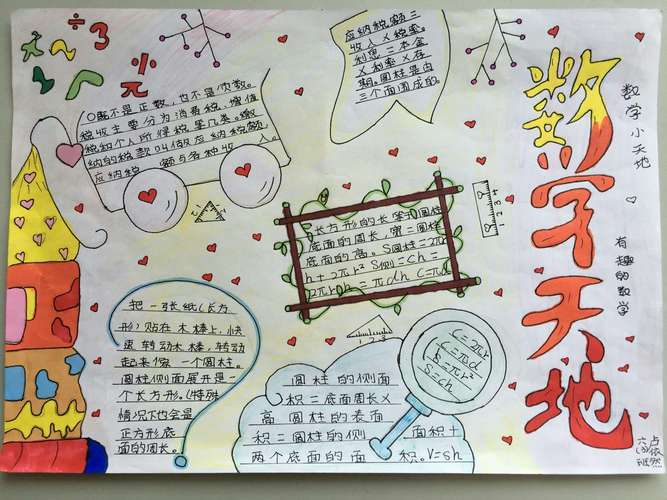 ÷3
元
0既不是正数,也不是负数。
税收主要分为消费税、增值
税和个人所得税等几类。缴
纳的税款叫做应纳税额
应纳税 额与各种收 入。
应纳税额=
收入×税率。
利息=本金
×利率×存
期。圆柱是由
三个面围成的。
长方形的长等于圆柱
底面的周长,宽=圆柱
底面的高。S圆柱=2πr
h+2πr² S侧=Ch=
2πrh=πdh C=πd
把一张纸(长方
形)贴在木棒上,快
速转动木棒,转动
起来像一个圆柱。
圆柱侧面展开是一
个长方形。(特殊
情况下也会是
正方形底
面的周长。
圆柱的侧面
积=底面周长×
高 圆柱的表面
积=圆柱的侧 面积+
两个底面的面 积。V=sh
C=2πr
C=πd
S=πr²
S=ch
1 2 3
1 2 3 4
数学天地
数学小天地
有趣的数学